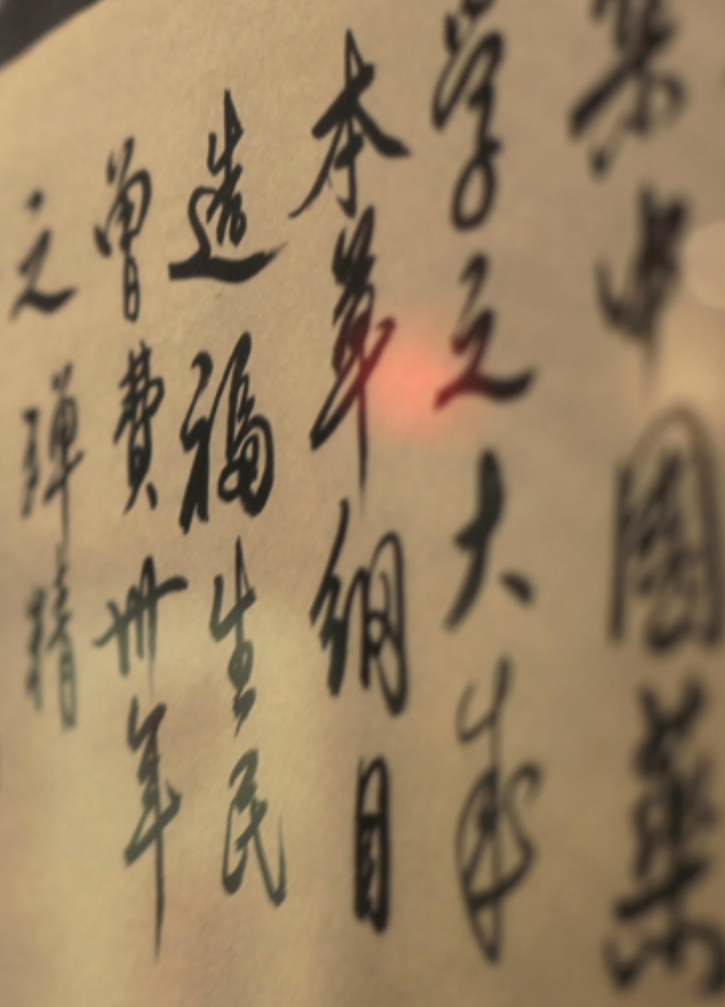 集中國藥
学之大成
本草綱目
造福生民
曾費卅年
之殚精